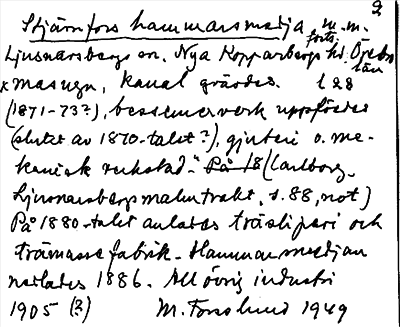 2
Stjärnfors hammarsmedja m.m.
forts.
Ljusnarsbergs sn, Nya Kopparbergs hd. Örebro
län
x masugn, kanal grävdes. 128
(1871-73?), bessemerverk uppfördes
(slutet av 1870-talet?), gjuteri o. me-
kanisk verkstad." På 18 (Carlborg,
Ljusnarsbergs malmtrakt, s. 88, not)
På 1880-talet anlades träsliperi och
trämassefabrik. Hammarsmedjan
nerlades 1886. All övrig industri
1905 (?) M. Forslund 1949